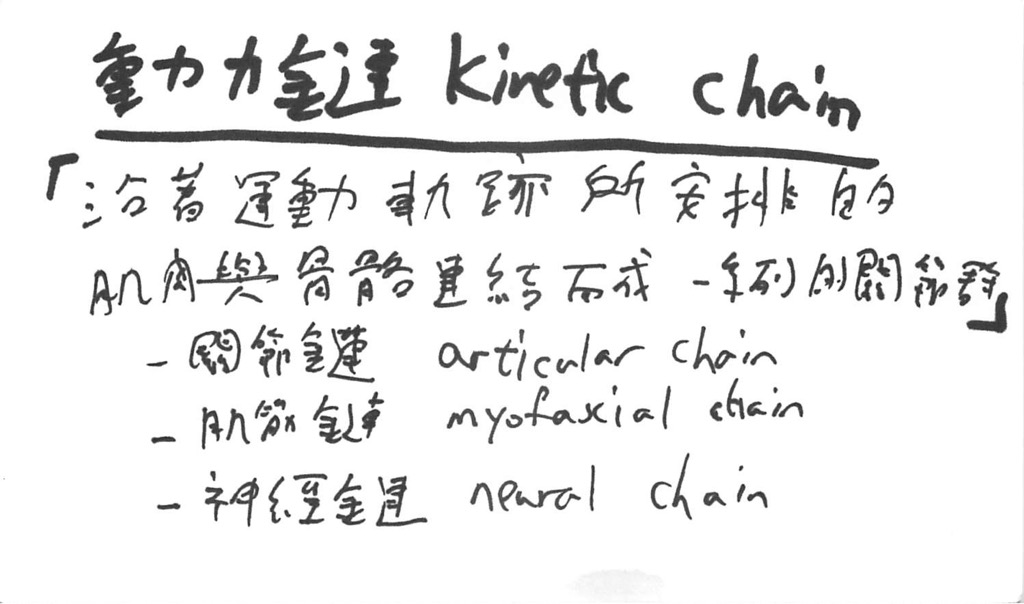 動力鏈 Kinetic chain
「沿著運動軌跡所安排的
肌肉與骨骼連結而成一系列的關節群」
- 關節鏈 articular chain
- 肌筋鏈 myofascial chain
- 神經鏈 neural chain